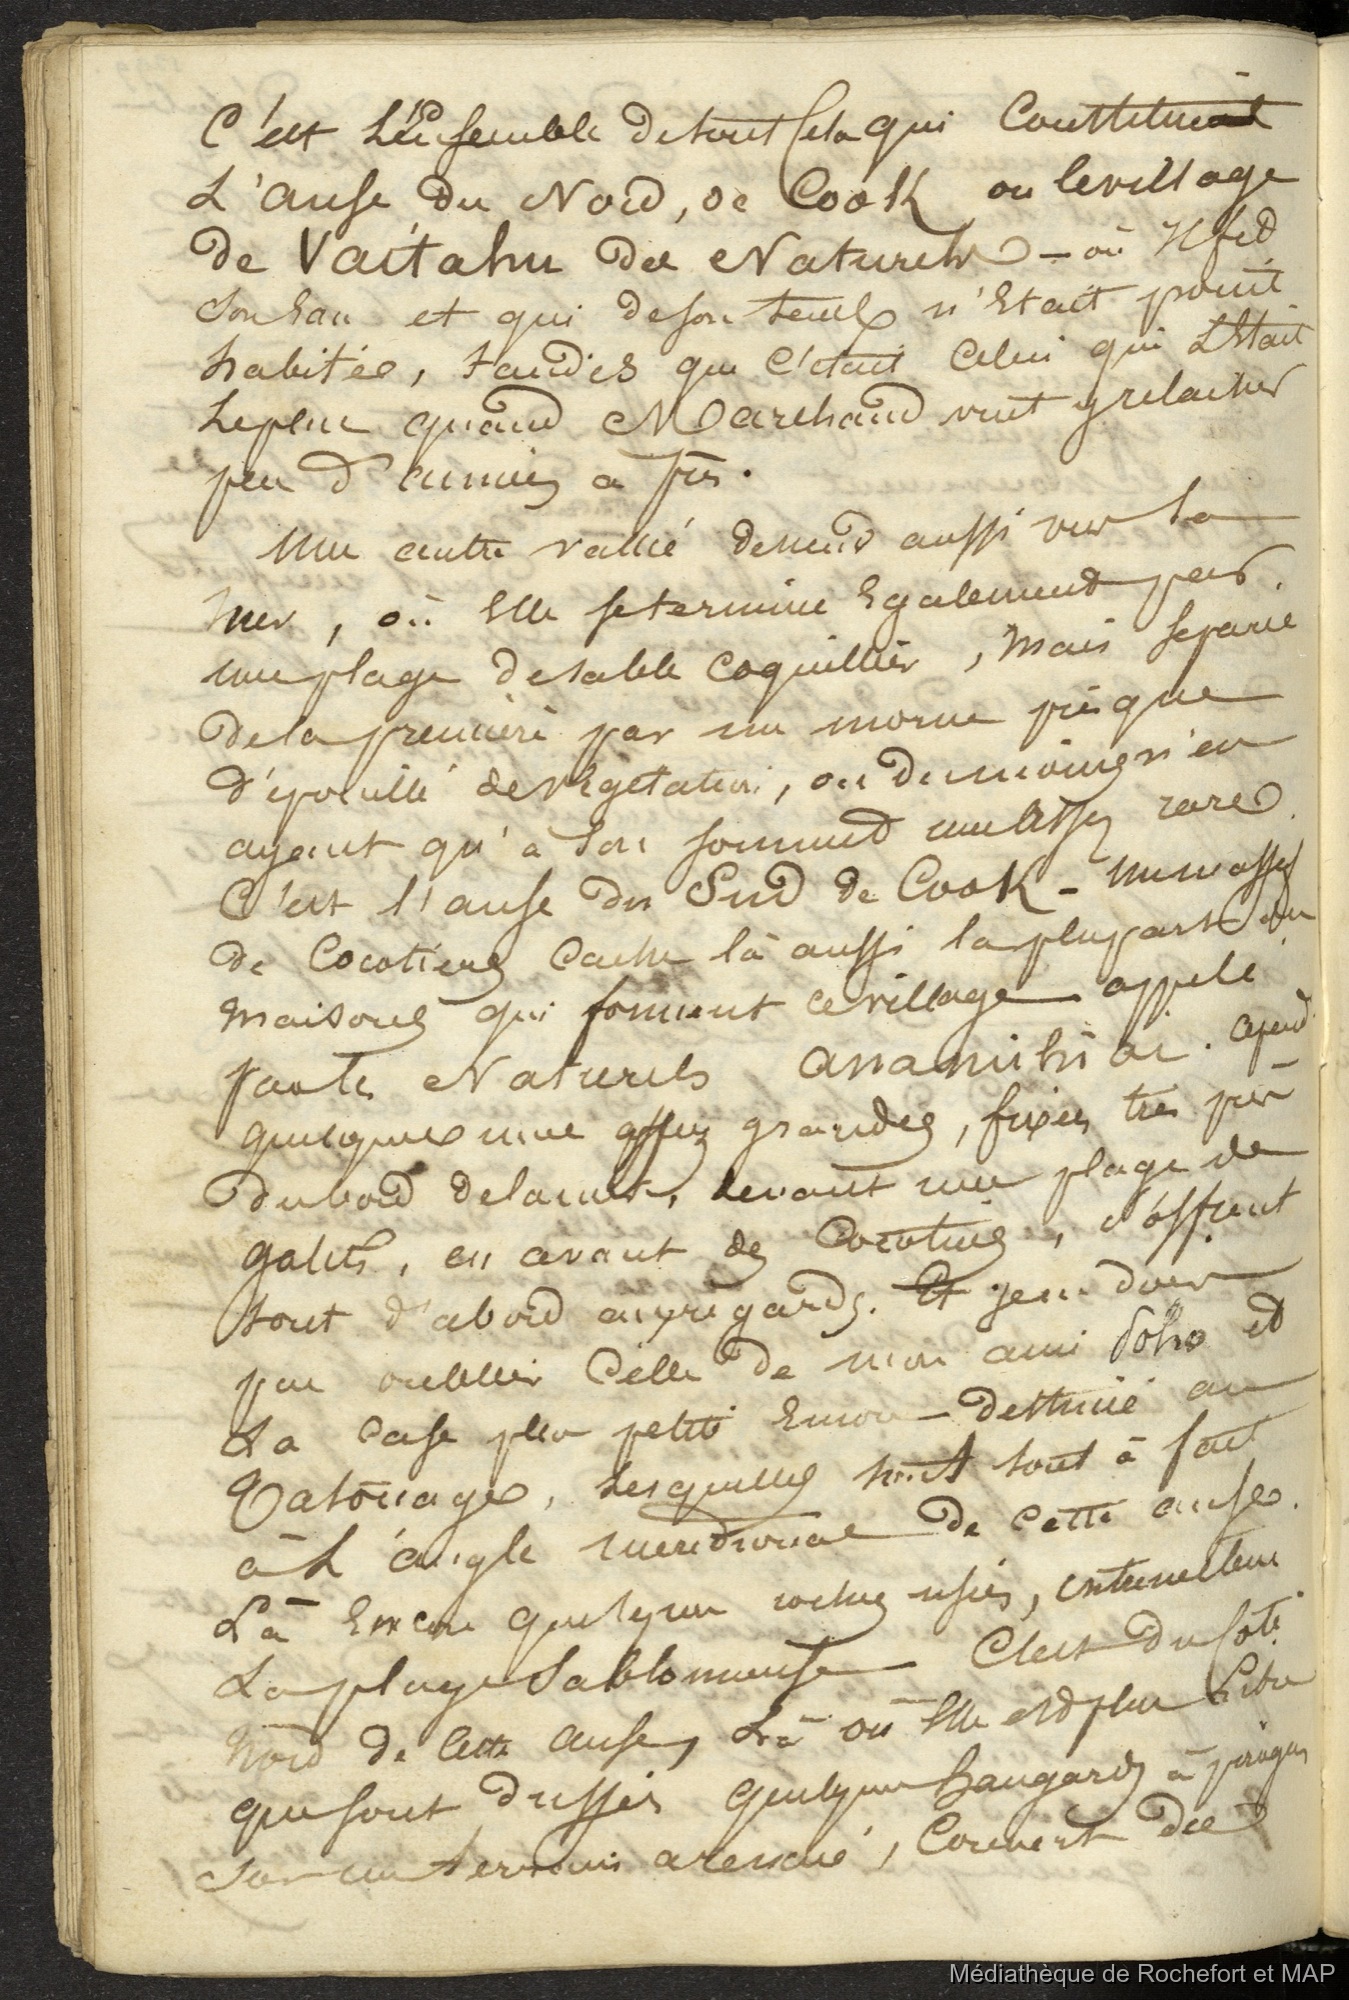 C'est L'Ensemble de tout Cela qui Constitue
L'anse du Nord, de Cook ou le village
de Vaitahu des Naturels – où Il fit
son Eau et qui de son temps n'Etait point
habitée, tandis que c'était Celui qui L'Etait
Le plus quand Marchand vint y relacher
peu d'années après.
Une autre vallée descend aussi vers La
Mer, où Elle se termine Egalement par
une plage de sable coquillier, Mais separée
de la première par un morne presque
d'épouillé de Végétation, ou du moins n'en
ayant qu'à son sommet une assez rare.
C'est l'anse du Sud de Cook – Un massif
de Cocotiers Cache là aussi la plupart des
Maisons qui forment ce village appelé
par les Naturels anamihiai. Cepend
quelques unes assez grandes, fixées très près
du bord de la mer, devant une plage de
galets, en avant des Cocotiers, s'offrent
tout d'abord aux regards. Et je ne dois
pas oublier Celle de mon ami Toho et
La Case plus petite Encore destinée au
Tatouage, Lesquelles sont tout à fait
à L'angle meridional de cette anse.
Là Encore quelques roches usées, entremelent
La plage Sablonneuse C'est du Coté
Nord de Cette anse, Là où Elle est plus Libre
que sont dressés quelques hangards à pirogues
sur un terrain arenacé, Couvert de
Médiathèque de Rochefort et MAP